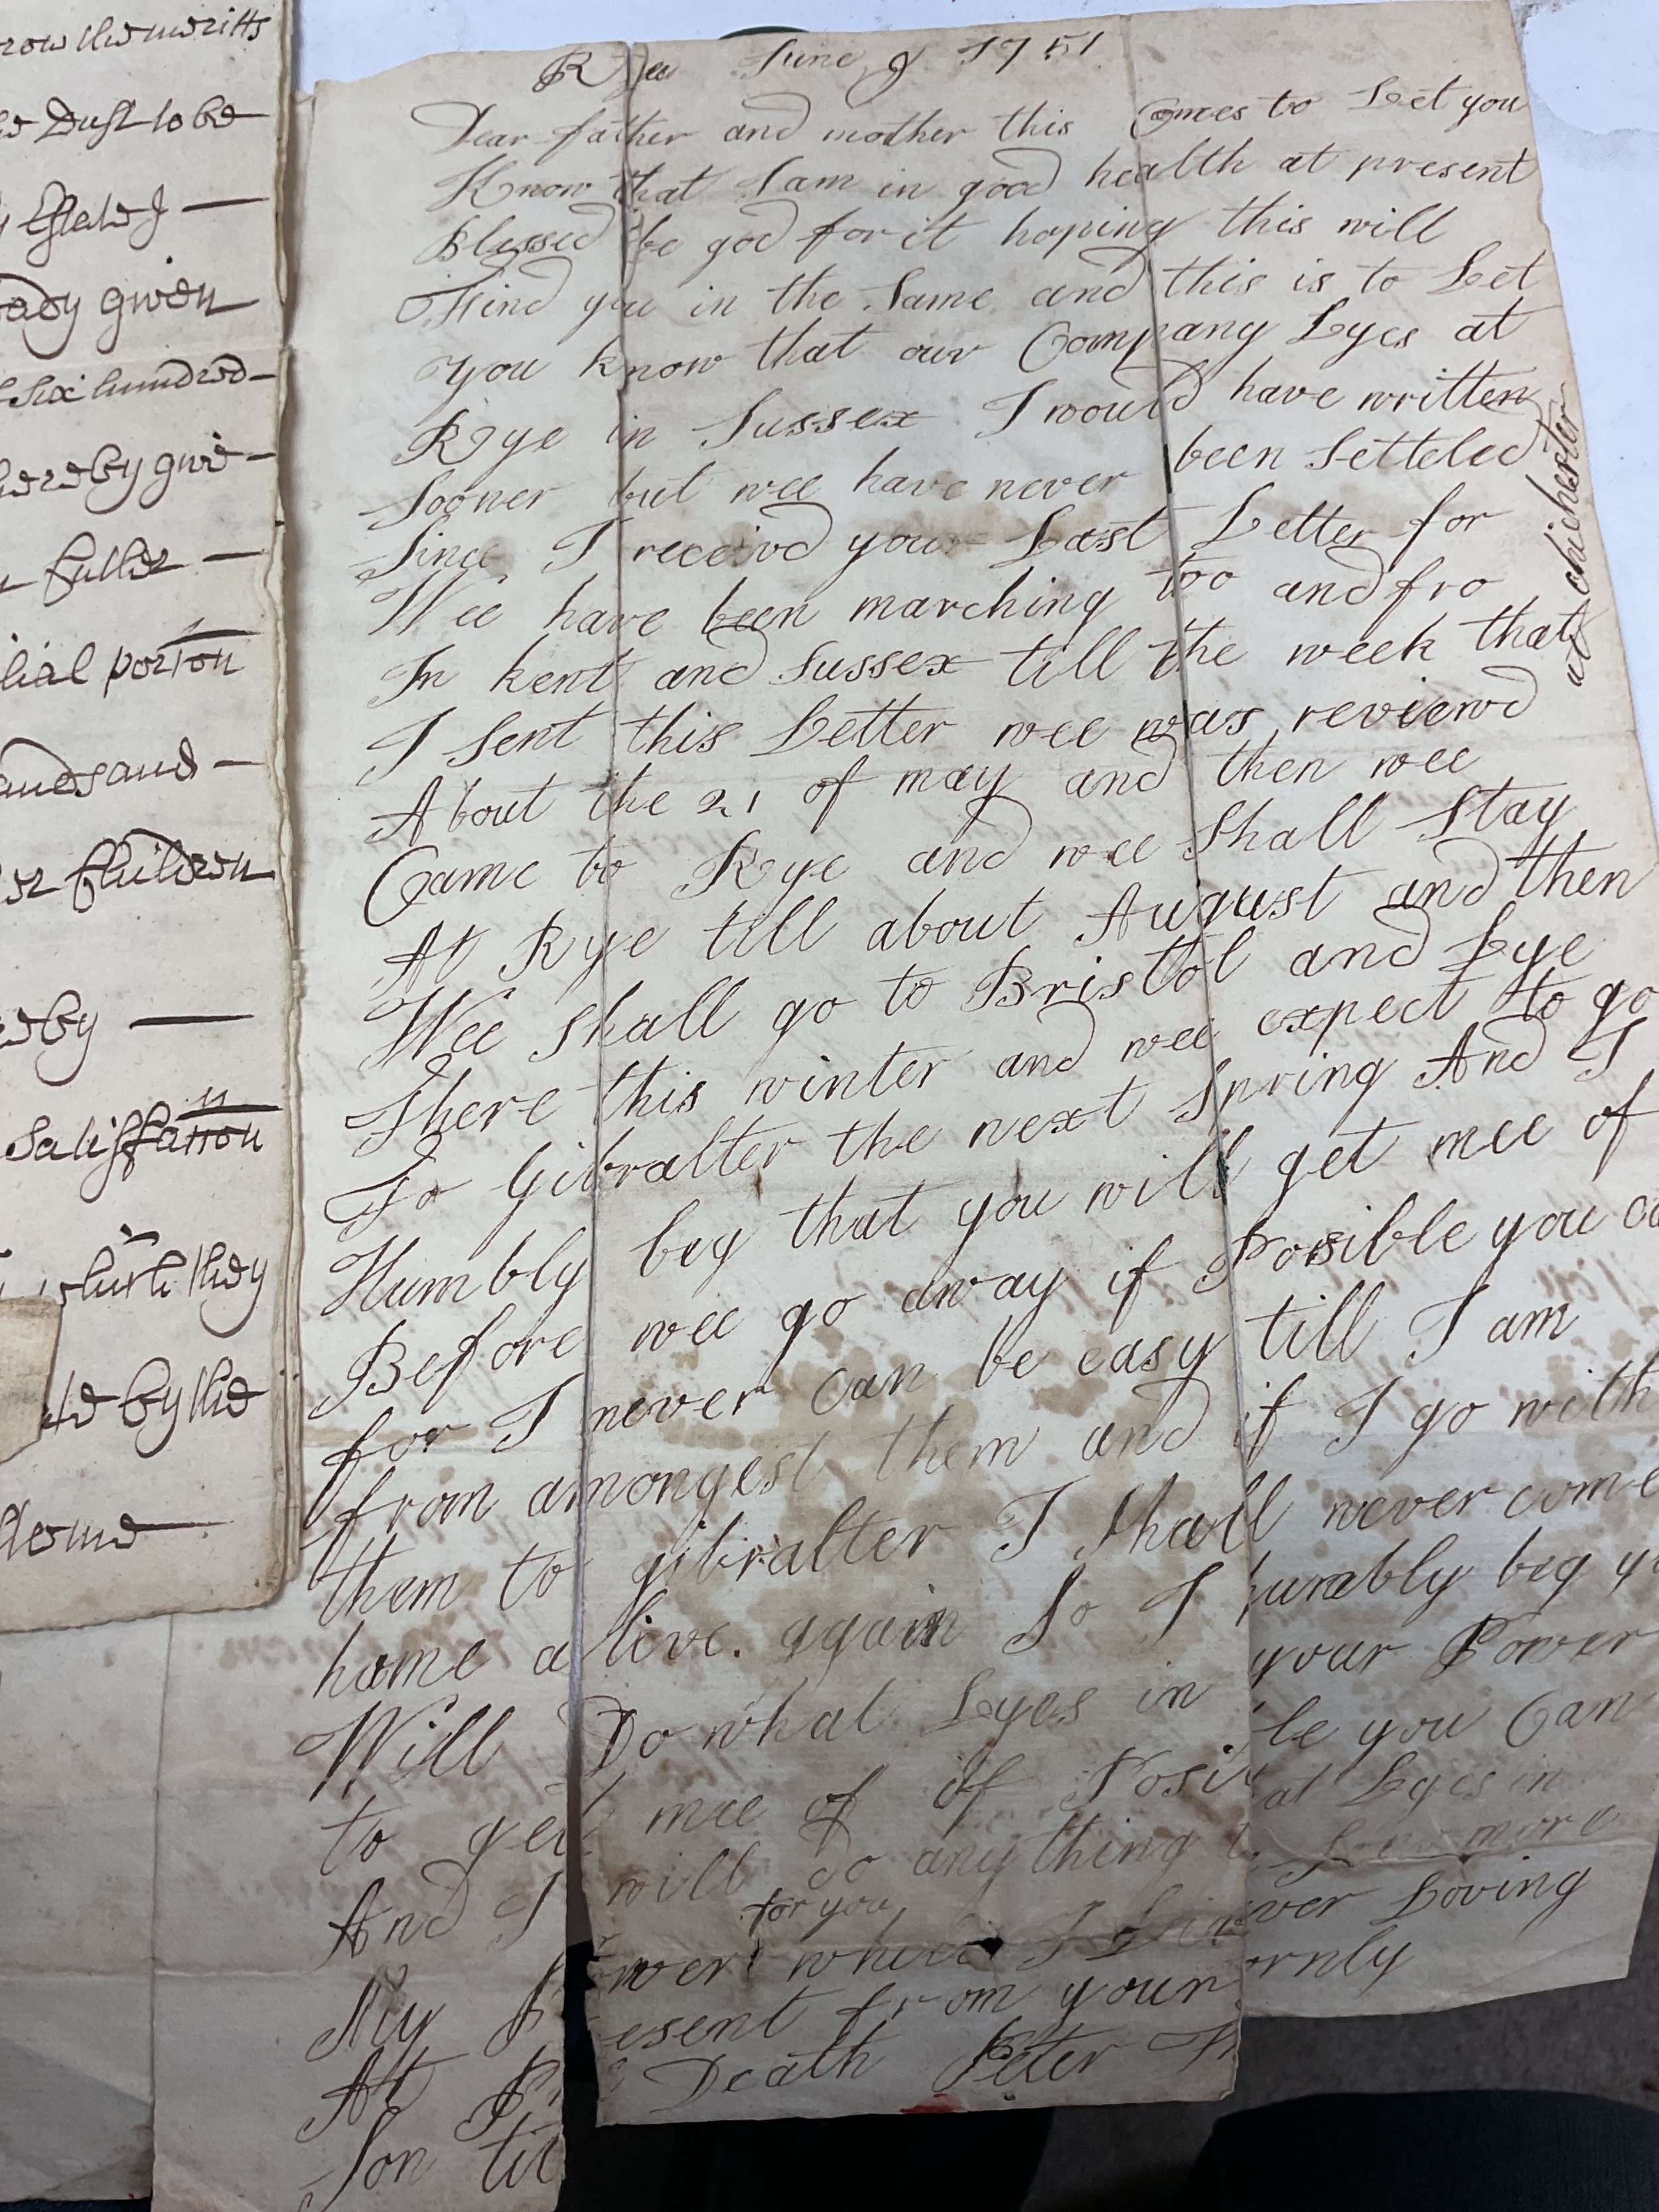 Rye June 9 1751
Dear father and mother this Comes to Let you
Know that I am in good health at present
Blessed be god for it hoping this will
Find you in the Same and this is to Let
you know that our Company Lyes at
Rye in Sussex I would have written
Sooner but wee have never been Setteled
Since I receivd your Last Letter for
Wee have been marching too and fro
In kent and Sussex till the week that
I Sent this Letter wee was reviewd
at chichester
About the 21 of may and then wee
Came to Rye and wee Shall Stay
At Rye till about August and then
Wee Shall go to Bristol and Lye
There this winter and wee expect to go
To Gibralter the next Spring And I
Humbly beg that you will get mee of
Before wee go away if Posible you ca
for I never Can be easy till I am
from amongest them and if I go with
them to gibralter I Shall never come
home alive. again So I humbly beg yo
Will Do what Lyes in your Power
to get mee of if Posible you Can
And I will do anything that Lyes in
for you
My Power while I Live no more
At Present from your ever Loving
Son til Death Peter Thornly
row the meritts
Dust to be
Estate
ready given
Six hundred
hereby give
fuller
portion
and
Children
by
Satisfaction
which they
by the